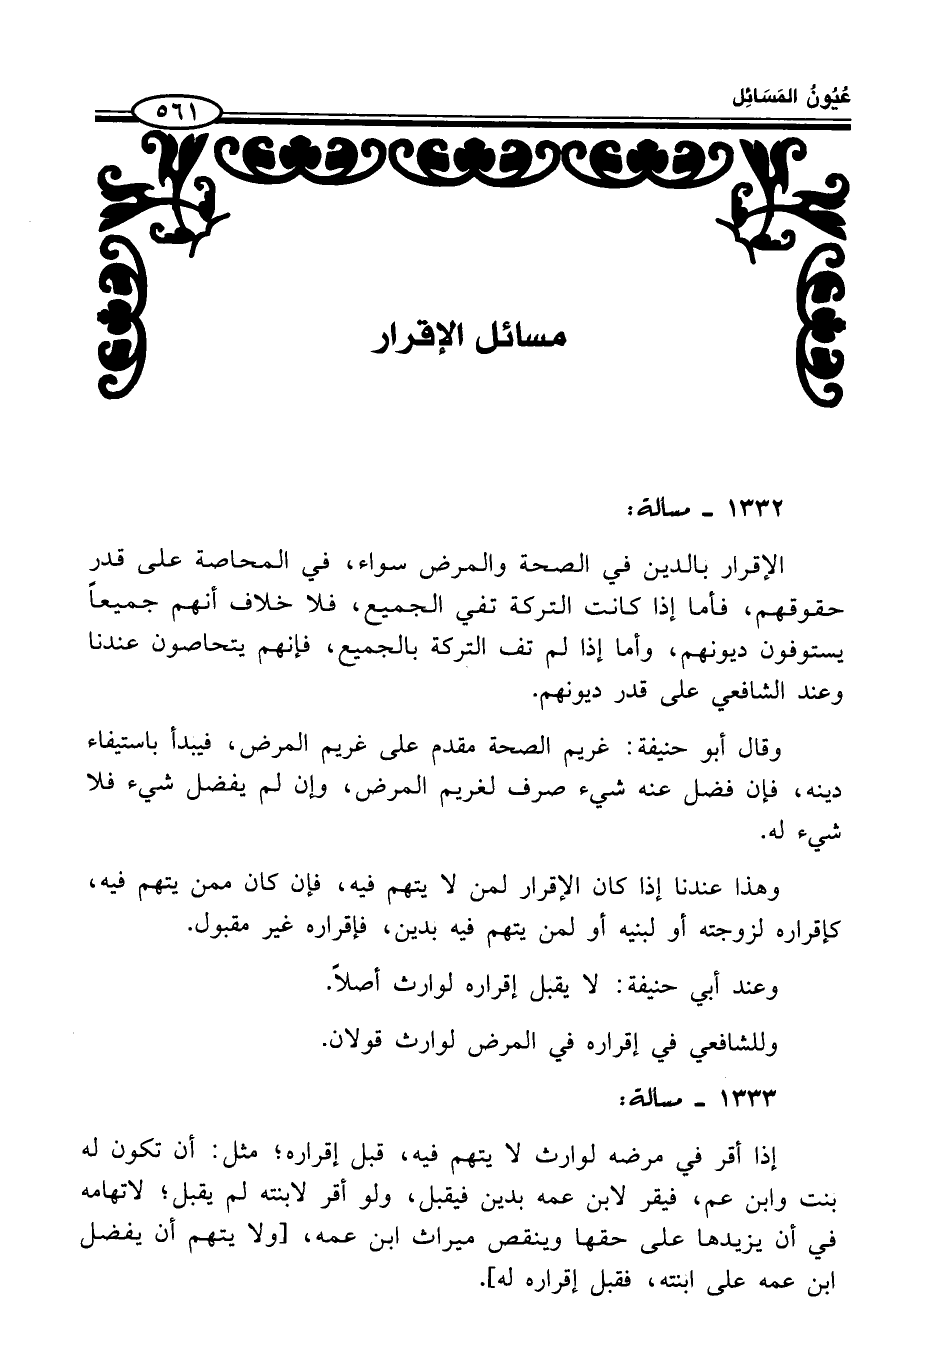 عُيُونُ المَسَائِل
٥٦١
مسائل الإقرار
١٣٣٢ ـ مسالة:
الإقرار بالدين في الصحة والمرض سواء، في المحاصة على قدر
حقوقهم، فأما إذا كانت التركة تفي الجميع، فلا خلاف أنهم جميعاً
يستوفون ديونهم، وأما إذا لم تف التركة بالجميع، فإنهم يتحاصون عندنا
وعند الشافعي على قدر ديونهم.
وقال أبو حنيفة: غريم الصحة مقدم على غريم المرض، فيبدأ باستيفاء
دينه، فإن فضل عنه شيء صرف لغريم المرض، وإن لم يفضل شيء فلا
شيء له.
وهذا عندنا إذا كان الإقرار لمن لا يتهم فيه، فإن كان ممن يتهم فيه،
كإقراره لزوجته أو لبنيه أو لمن يتهم فيه بدين، فإقراره غير مقبول.
وعند أبي حنيفة: لا يقبل إقراره لوارث أصلاً.
وللشافعي في إقراره في المرض لوارث قولان.
١٣٣٣ ـ مسالة:
إذا أقر في مرضه لوارث لا يتهم فيه، قبل إقراره؛ مثل: أن تكون له
بنت وابن عم، فيقر لابن عمه بدين فيقبل، ولو أقر لابنته لم يقبل؛ لاتهامه
في أن يزيدها على حقها وينقص ميراث ابن عمه، [ولا يتهم أن يفضل
ابن عمه على ابنته، فقبل إقراره له].